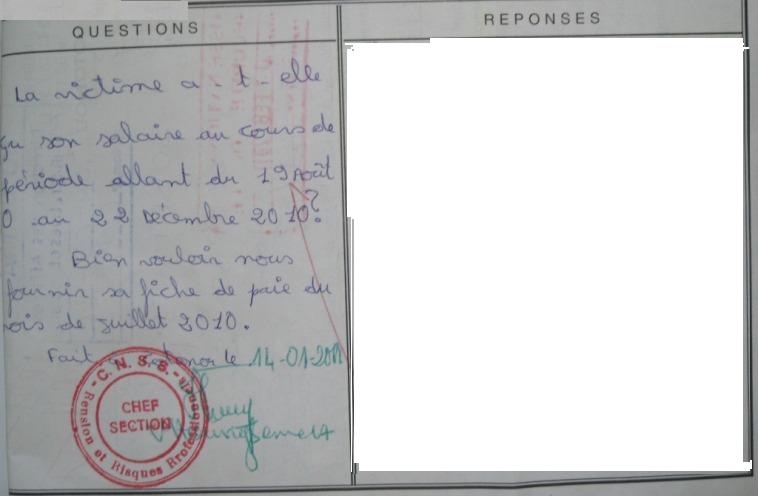 QUESTIONS
REPONSES
La victime a-t-elle
çu son salaire au cours de
période allant du 19 Août
0 au 22 Décembre 2010?
Bien vouloir nous
fournir sa fiche de paie du
ois de juillet 2010.
Fait le 14-01-2011
C.N.S.S.-Bénin
CHEF
SECTION
Pension et Risques Professionnels